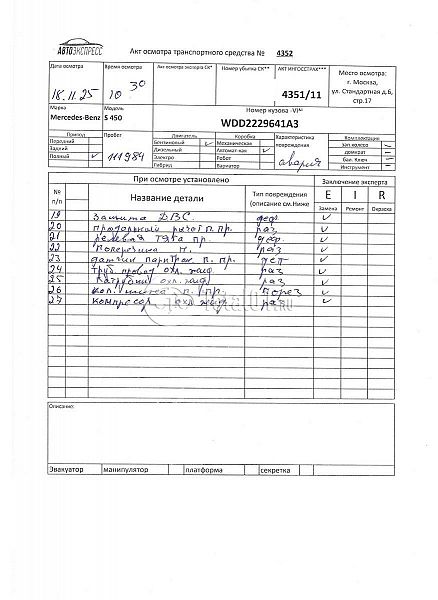 АВТОЭКСПРЕСС
Акт осмотра транспортного средства № 4352
Дата осмотра Время осмотра Акт осмотра эксперта СК* Номер убытка СК** АКТ ИНГОССТРАХ*** Место осмотра:
18.11.25 10 30 4351/11 г. Москва,
ул. Стандартная д.6,
стр.17
Марка Модель Номер кузова -VIN
Mercedes-Benz S 450 WDD2229641A3
Привод Пробег Двигатель Коробка Характеристика повреждения Комплектация
Передний Бензиновый ✓ Механическая зап.колесо ✓
Задний 111984 Дизельный Автомат-кая ✓ авария домкрат
Полный ✓ Электро Робот бал. Ключ
Гибрид Вариатор Инструмент
При осмотре установлено Заключение эксперта
№ п/п Название детали Тип повреждения (описание см.Ниже E I R
Замена Ремонт Окраска
19 Защита ДВС деф. ✓
20 продольный рычаг п. пр. раз ✓
21 рулевая тяга пр. деф. ✓
22 раз ✓
23 датчик парктрон п. пр. ✓
24 охл. жид. раз ✓
25 охл. жид. раз ✓
26 п. пр. порез ✓
27 компрессор охл. жид. раз ✓
Описание:
Эвакуатор манипулятор платформа секретка